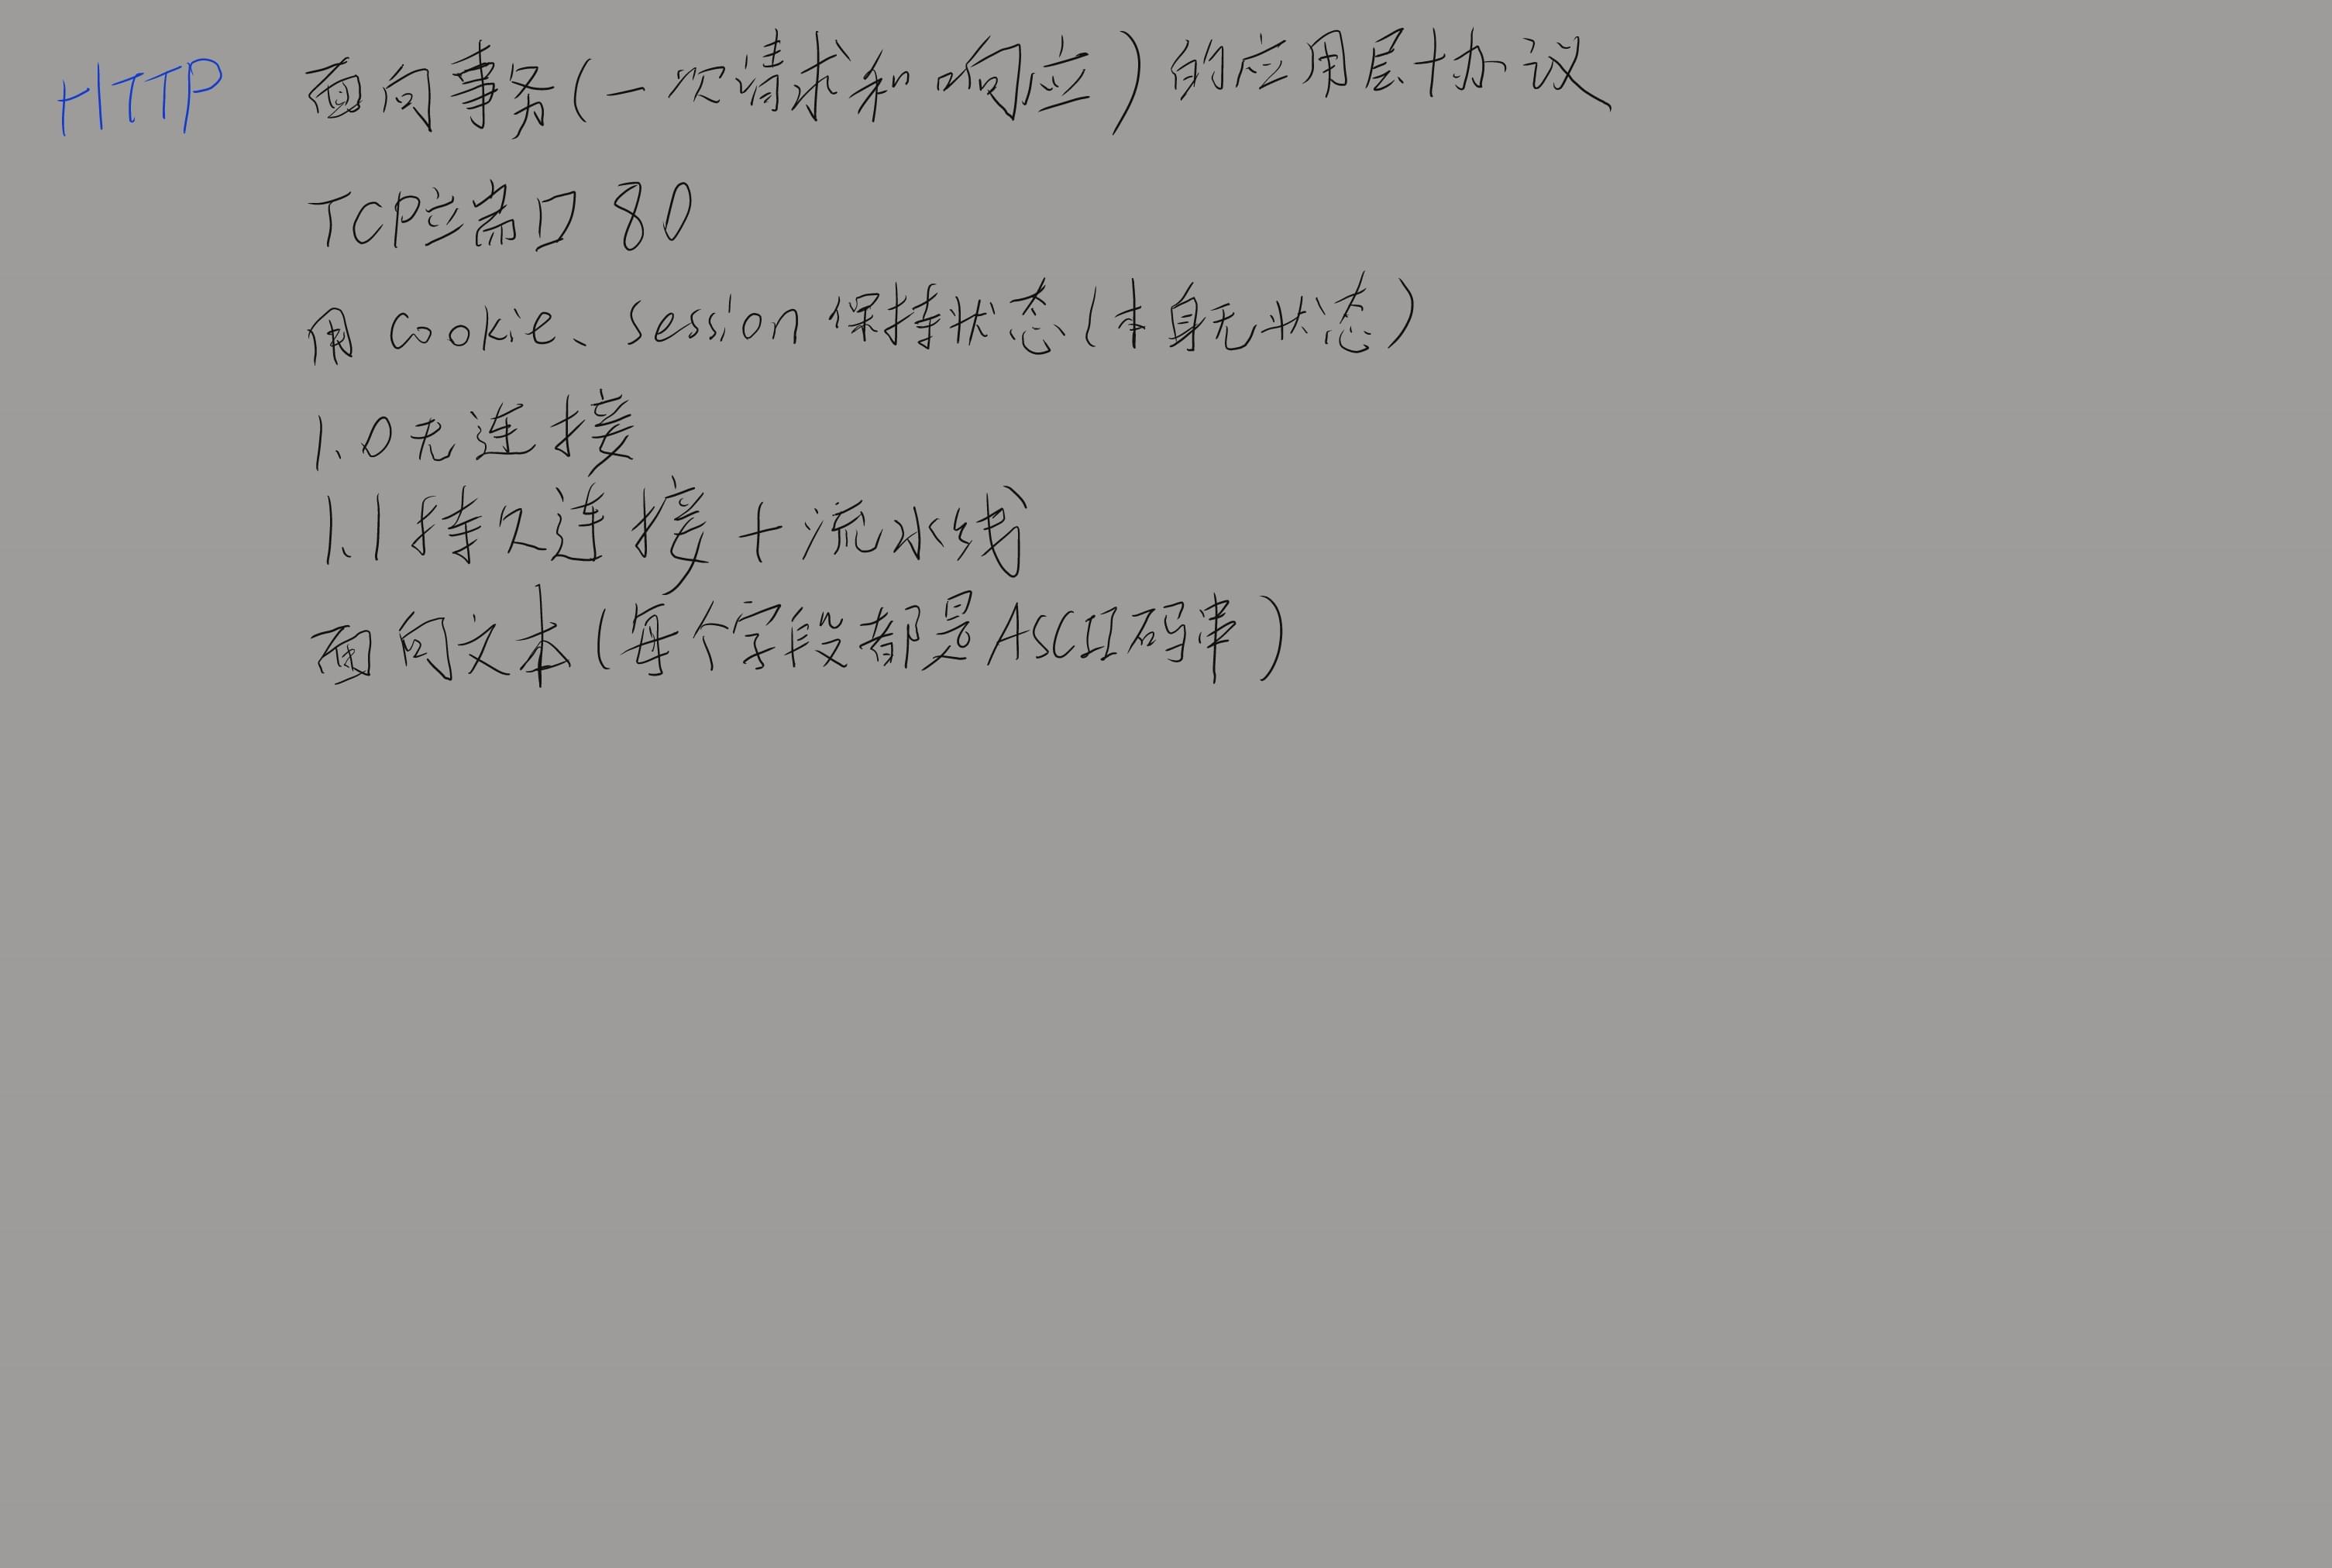 HTTP 面向事务(一次请求和响应)的应用层协议
TCP端口 80
用 cookie、session 保持状态(本身无状态)
1.0无连接
1.1持久连接+流水线
面向文本(每个字段都是ASCII码串)